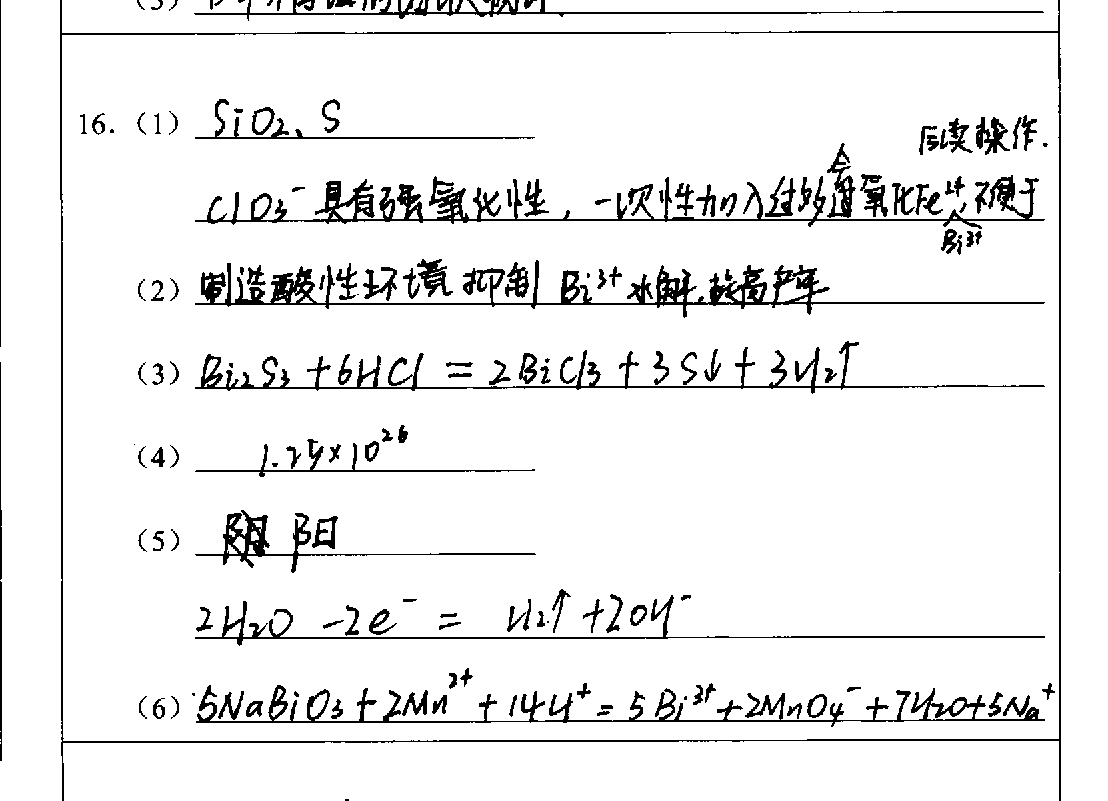 (3)
16.(1) SiO₂、S
后续操作.
ClO₃⁻ 具有强氧化性，一次性加入过多会过氧化Fe²⁺,不便于
Bi³⁺
(2) 制造酸性环境 抑制 Bi³⁺水解,提高产率
(3) Bi₂S₃ + 6HCl = 2BiCl₃ + 3S↓ + 3H₂↑
(4) 1.25×10²⁶
(5) 阴 阳
2H₂O -2e⁻ = H₂↑ +2OH⁻
(6) 5NaBiO₃ + 2Mn²⁺ + 14H⁺ = 5Bi³⁺ + 2MnO₄⁻ + 7H₂O + 5Na⁺